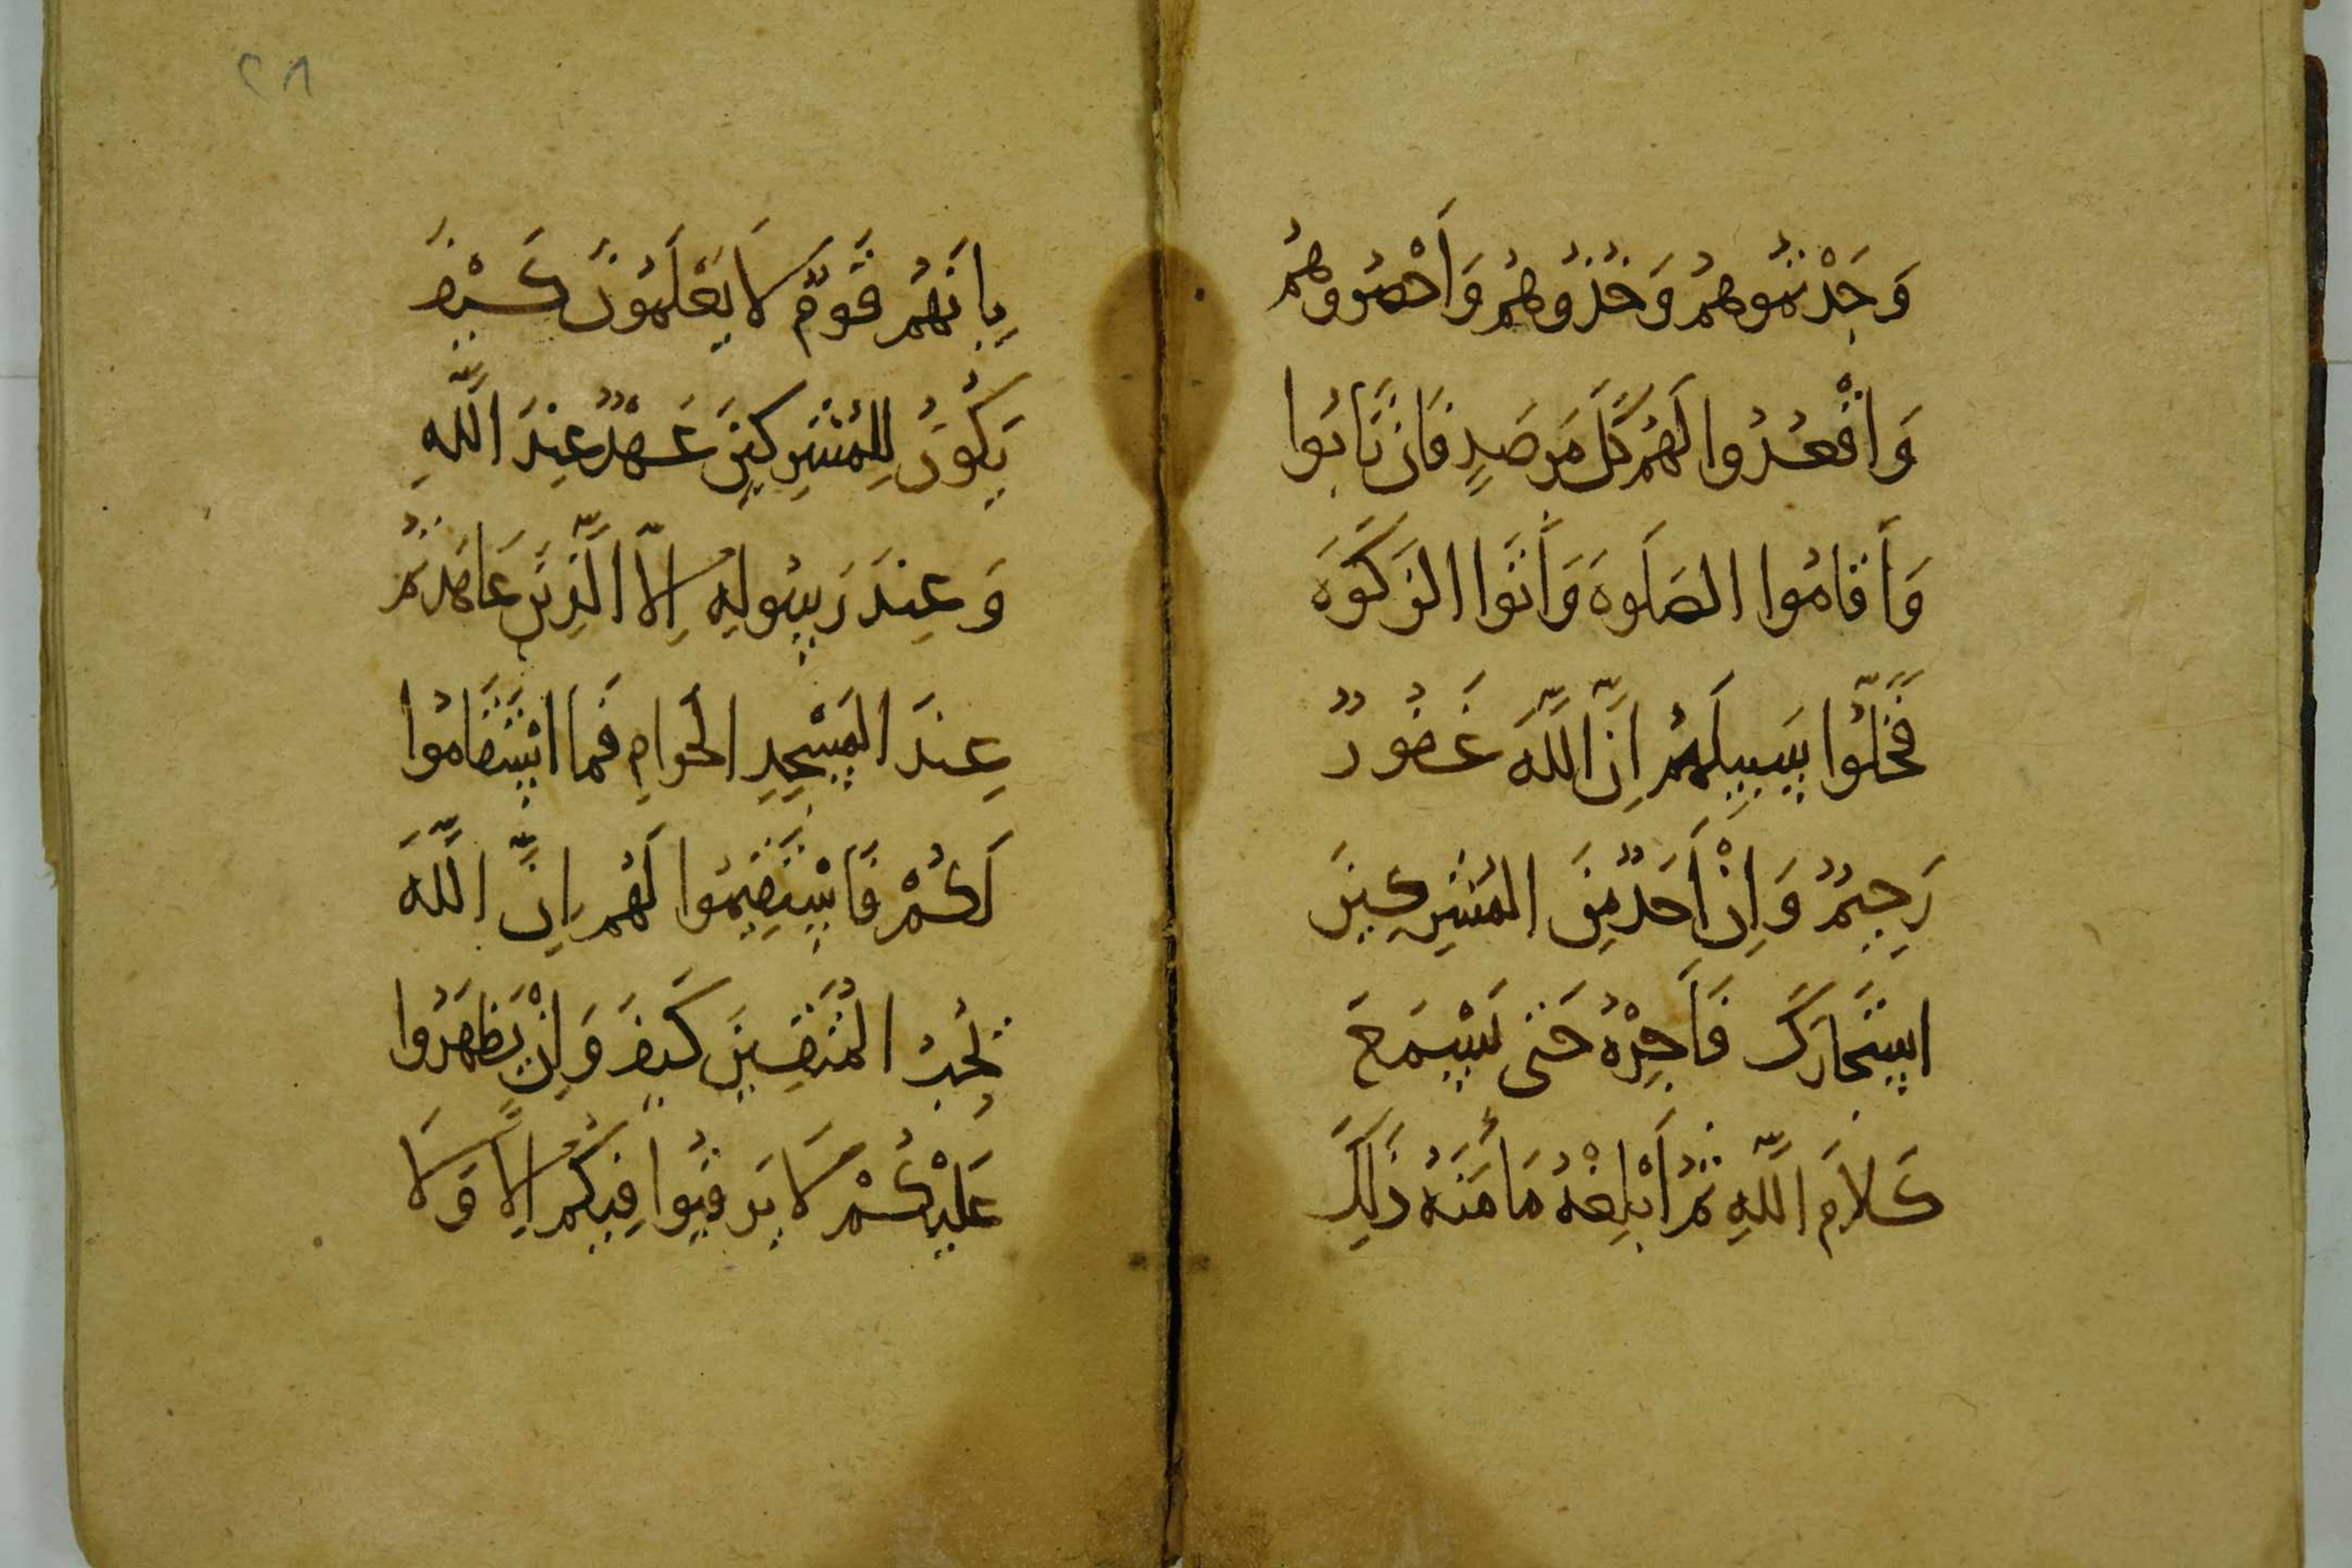 وَجَدْتُمُوهُمْ وَخُذُوهُمْ وَاَحْصُرُوهُمْ
وَاقْعُدُوا لَهُمْ كُلَّ مَرْصَدٍ فَاِنْ تَابُوا
وَاَقَامُوا الصَلَوةَ وَاَتَوُا الزَكَوةَ
فَخَلُّوا سَبِيلَهُمْ اِنَّ اللَّهَ غَفُورٌ
رَحِيمٌ وَاِنْ اَحَدٌ مِنَ المُشْرِكِينَ
اسْتَجَارَكَ فَاَجِرْهُ حَتَى يَسْمَعَ
كَلَامَ اللَّهِ ثُمَّ اَبْلِغْهُ مَأْمَنَهُ ذَلِكَ
٢٨
بِاَنَهُمْ قَوْمٌ لَا يَعْلَمُونَ كَيْفَ
يَكُونُ لِلْمُشْرِكِينَ عَهْدٌ عِنْدَ اللَّهِ
وَعِنْدَ رَسُولِهِ اِلَّا الَّذِينَ عَاهَدْتُمْ
عِنْدَ المَسْجِدِ الحَرَامِ فَمَا اسْتَقَامُوا
لَكُمْ فَاسْتَقِيمُوا لَهُمْ اِنَّ اللَّهَ
يُحِبُ المُتَقِينَ كَيْفَ وَاِنْ يَظْهَرُوا
عَلَيْكُمْ لَا يَرْقُبُوا فِيكُمْ اِلًّا وَلَا